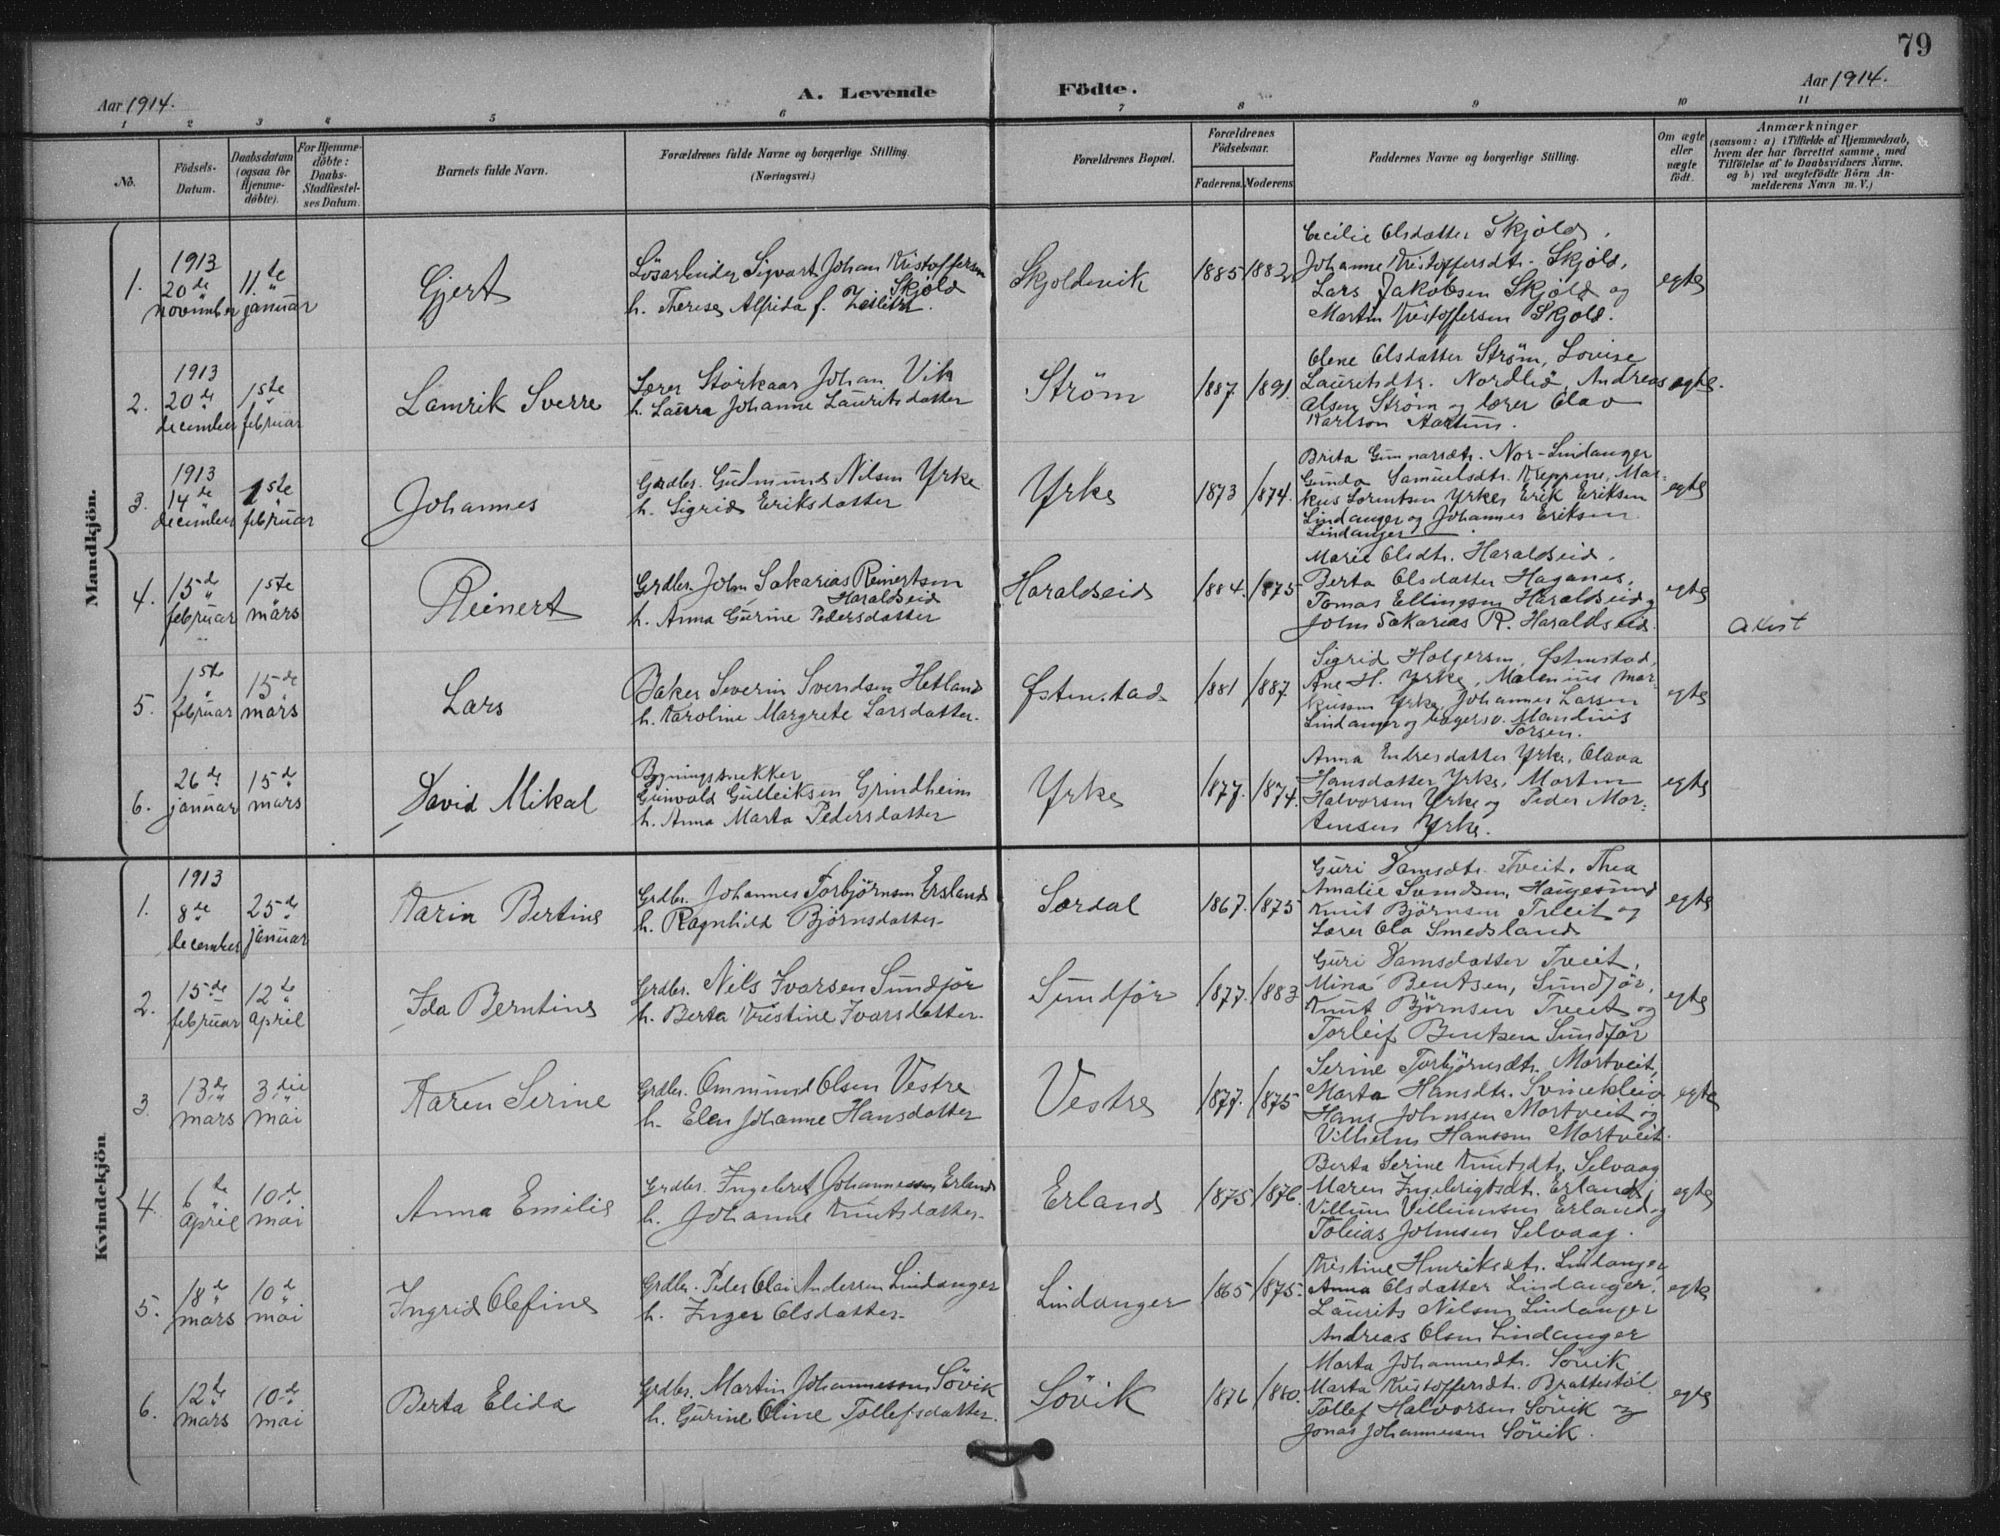 79
Aar 1914.
A. Levende Födte.
Aar 1914.
1 2 3 4 5 6 7 8 9 10 11
No.
Födsels-
Datum.
Daabsdatum
(ogsaa for
Hjemme-
döbte).
For Hjemme-
döbte:
Daabs-
Stadfæstel-
ses Datum.
Barnets fulde Navn.
Forældrenes fulde Navne og borgerlige Stilling.
(Næringsvei.)
Forældrenes Bopæl.
Forældrenes
Födselsaar.
Faderens. Moderens.
Faddernes Navne og borgerlige Stilling.
Om ægte
eller
uægte
födt.
Anmærkninger
(saasom: a) i Tilfælde af Hjemmedaab,
hvem der har forrettet samme, med
Tilföielse af to Daabsvidners Navne,
og b) ved uægtefödte Börn An-
melderens Navn m. V.)
Mandkjön.
1.
1913
20de
november
11te
januar
Gjert
Lösarbeider Sigvart Johan Kristoffersen
Skjold
h. Therese Alfrida f.
Skjoldevik
1885 1882
Cecilie Olsdatter Skjold,
Johanne Kristoffersdt. Skjold,
Lars Jakobsen Skjold og
Martin Kristoffersen Skjold.
egte
2.
1913
20de
december
1ste
februar
Lamrik Sverre
Lærer Storkaar Johan Vik
h. Laura Johanne Lauritsdatter
Ström
1887. 1891.
Olene Olsdatter Ström, Lovise
Lauritsdtr. Nordlid, Andreas
Olsen Ström og lærer Olav
Karlson
egte.
3.
1913
14de
december
1ste
februar
Johannes
Grdbr. Gudmund Nilsen Yrke
h. Sigrid Eriksdatter
Yrke
1873 1874.
Brita Gunnarsdt. Nor-Lindanger
Gunda Samuelsdt. Kleppene, Mar-
kus Lorentsen Yrke, Erik Eriksen
Lindanger og Johannes Eriksen
Lindanger
egte
4.
15de
februar
1ste
mars
Reinert
Grdbr. John Sakarias Reinertsen
Haraldseid
h. Anna Gurine Pedersdatter
Haraldseid
1884. 1875
Marie Olsdt. Haraldseid,
Berta Olsdatter Haganes,
Tomas Ellingsen Haraldseid og
John Sakarias R. Haraldseid.
egte
attest
5.
1ste
februar
15de
mars
Lars
Baker Severin Svendsen Hetland
h. Karoline Margrete Larsdatter.
Østenstad
1881 1887
Sigrid Holgersen, Østenstad,
Ane H. Yrke, Malenius Mar-
kusen Yrke, Johannes Larsen
Lindanger og bagersv. Mandius
Torsen.
egte
6.
26de
januar
15de
mars
David Mikal
Bygningssnekker
Gunvald Gulleiksen Grindheim
h. Anna Marta Pedersdatter
Yrke
1877. 1874.
Anna Endresdatter Yrke, Olava
Hansdatter Yrke, Morten
Halvorsen Yrke og Peder Mor-
tensen Yrke.
egte
Kvindekjön.
1.
1913
8de
december
25de
januar
Karin Bertine
Grdbr. Johannes Torbjörnsen Ersland
h. Ragnhild Björnsdatter.
Sørdal
1867. 1875
Guri Samsdt. Tveit, Thea
Amalie Svendsen, Haugesund
Knut Björnsen Tveit og
Lærer Ola Smedsland
egte
2.
15de
februar
12te
april
Ida Berntine
Grdbr. Nils Ivarsen Sundför
h. Berta Kristine Ivarsdatter.
Sundför
1877. 1883
Guri Samsdatter Tveit,
Mina Bentsen, Sundför,
Knut Björnsen Tveit og
Torleif Bentsen Sundför
egte
3.
13de
mars
3die
mai
Karen Serine
Grdbr. Ommund Olsen Vestre
h. Elen Johanne Hansdatter
Vestre
1877. 1875
Serine Torbjörnsdt. Mortveit,
Marta Hansdt. Svinekleiv
Hans Johnsen Mortveit og
Vilhelm Hanssen Mortveit.
egte
4.
6te
april
10de
mai
Anna Emilie
Grdbr. Ingebret Johannessen Erland
h. Johanne Knutsdatter.
Erland
1875 1876.
Berta Serine Knutsdt. Selvaag
Maren Ingebrigtsdt. Erland,
Villum Villumsen Erland og
Tobias Johnsen Selvaag.
egte
5.
18de
mars
10de
mai
Ingrid Olefine
Grdbr. Peder Olai Andersen Lindanger
h. Inger Olsdatter.
Lindanger
1865 1875.
Kristine Henriksdt. Lindanger
Anna Olsdatter Lindanger,
Laurits Nilsen Lindanger
Andreas Olsen Lindanger
egte
6.
12te
mars
10de
mai
Berta Elida
Grdbr. Martin Johannessen Sövik
h. Gurine Oline Tollefsdatter.
Sövik
1876 1880.
Marta Johannesdt. Sövik
Marta Kristoffersdt. Brattestöl
Tollef Halvorsen Sövik og
Jonas Johannesen Sövik.
egte